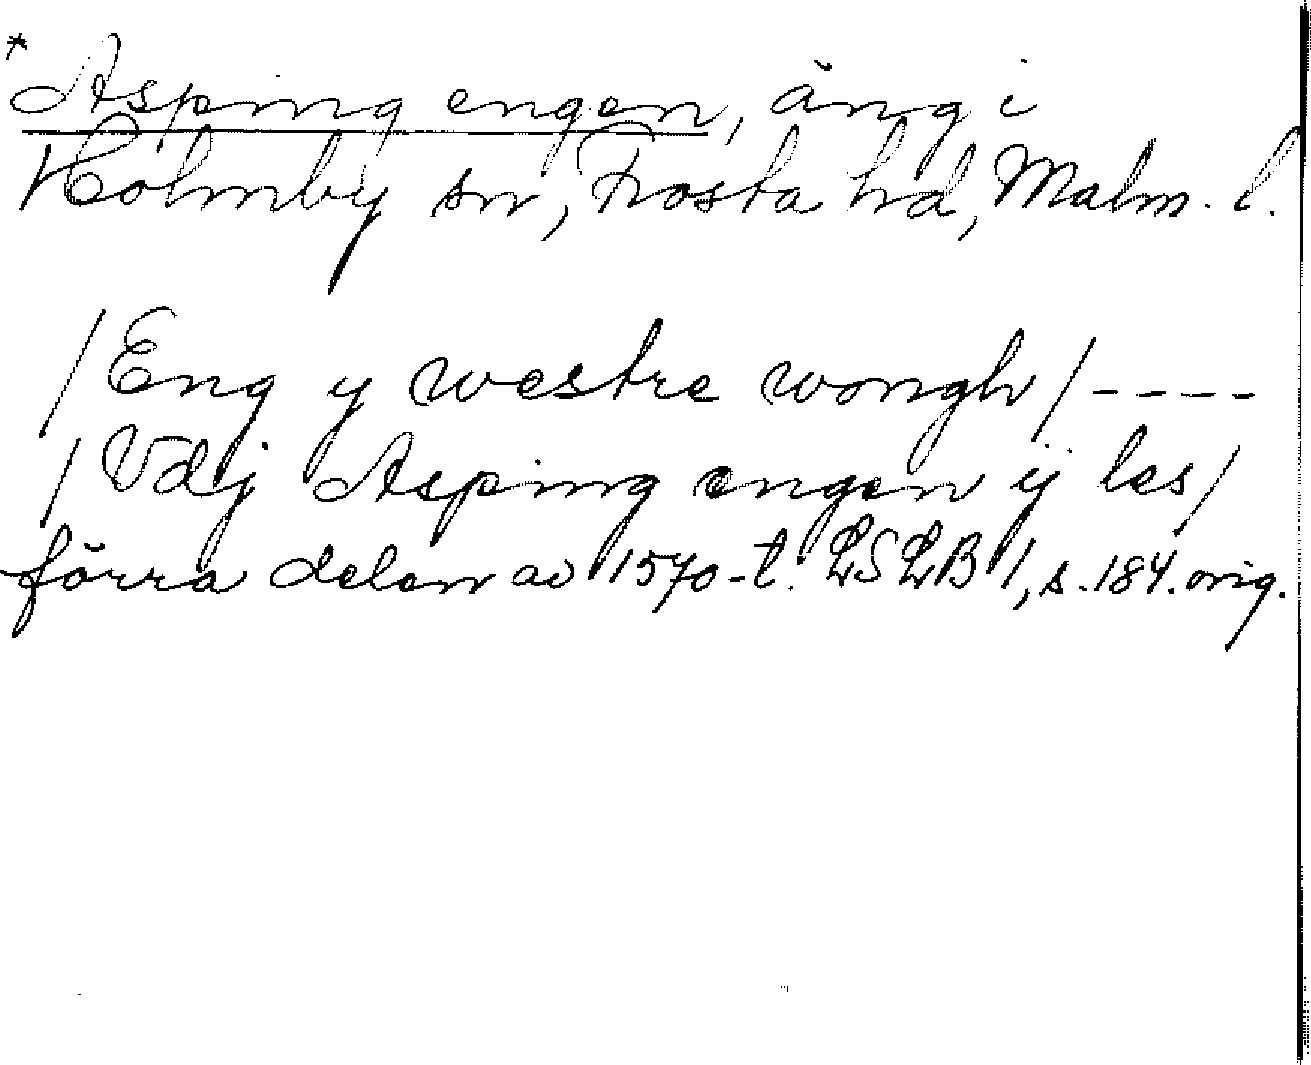 *Asping engen, äng i
Holmby sn, Frosta hd, Malm. l.
/Eng y westre wongh/----
/Vdj Asping engen ij les/
förra delen av 1570-t. LSLB 1, s. 184. orig.